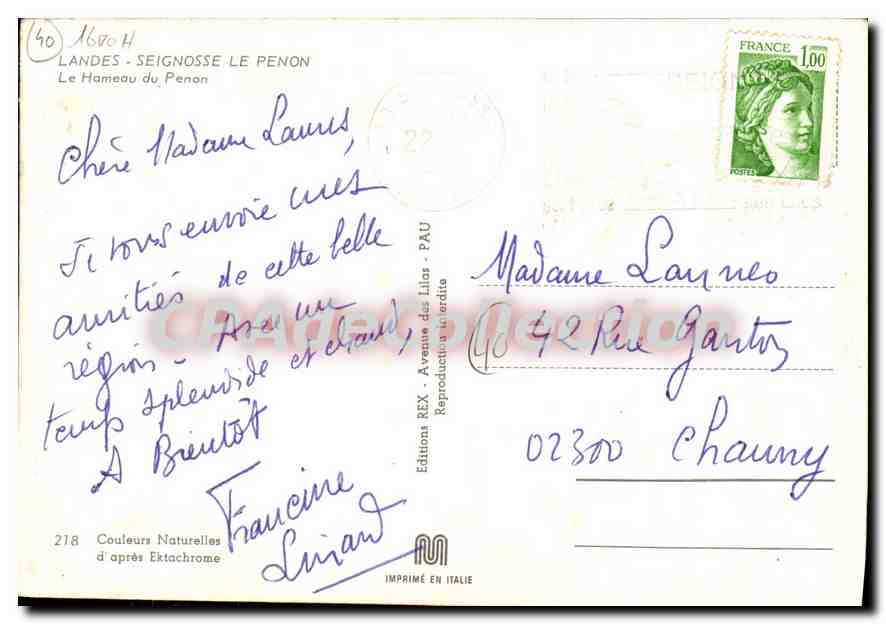 40
1680H
LANDES - SEIGNOSSE LE PENON
Le Hameau du Penon
FRANCE
1,00
POSTES
22
Chère Madame Launes,
Je vous envoie mes
amitiés de cette belle
région - Avec un
temps splendide et chaud,
A Bientôt
Francine
218 Couleurs Naturelles
d'après Ektachrome
Editions REX - Avenue des Lilas - PAU
Reproduction interdite
IMPRIMÉ EN ITALIE
CPA de Collection
Madame
40 42 Rue
02300 Chauny